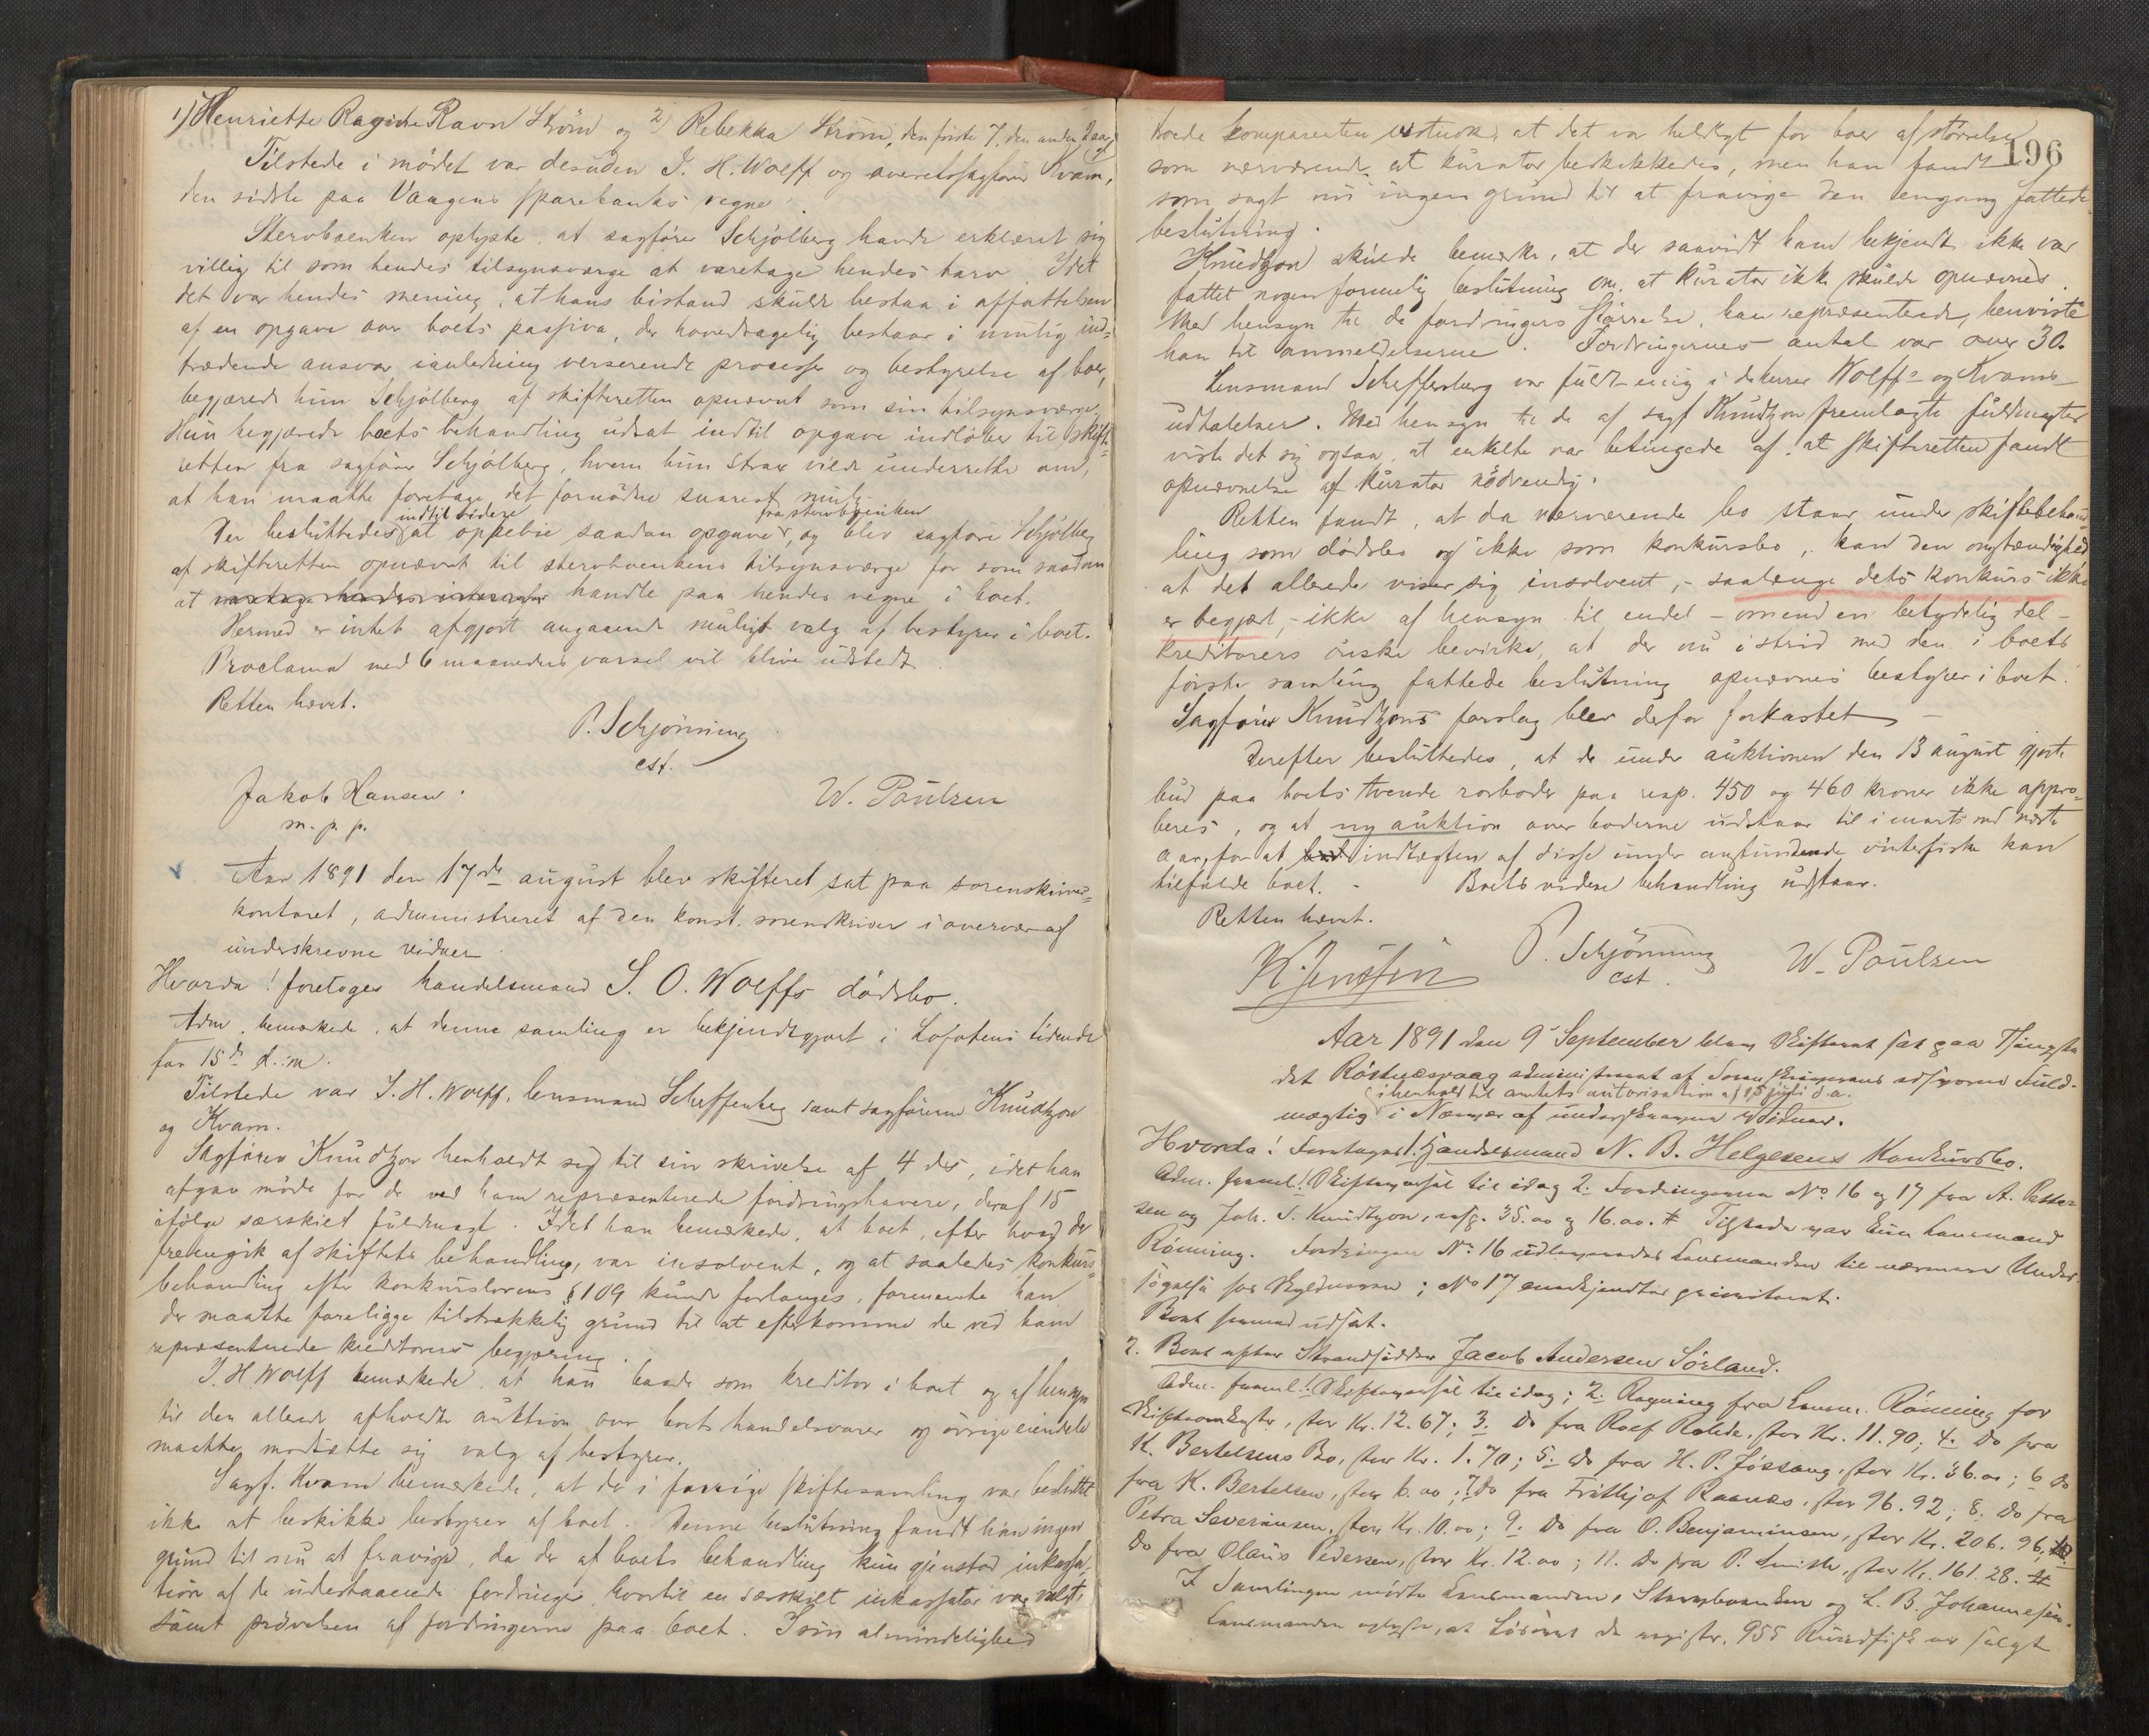 1) Henriette Ragine Ravn Strøm og 2) Rebekka Strøm, den første 7, den anden 2 aar.
Tilstede i mødet var desuden I. H. Wolff og overretssagfører Kvam,
den sidste paa Vaagens sparebanks vegne.
Stervboenken oplyste, at sagfører Schjølberg havde erklæret sig
villig til som hendes tilsynsværge at varetage hendes tarv. Idet
det var hendes mening, at hans bistand skulde bestaa i affattelsen
af en opgave over boets passiva, der hovedsagelig bestaar i mulig ind-
trædende ansvar i anledning verserende processer og bestyrelse af boer,
begjærede hun Schjølberg af skifteretten opnævnt som sin tilsynsværge.
Hun begjærede boets behandling udsat indtil opgave indløber til skift-
retten fra sagfører Schjølberg, hvem hun strax vilde underrette om,
at han maatte foretage det fornødne snarest mulig.
Der besluttedes indtil videre at oppebie saadan opgave fra stervboenken, og blev sagfører Schjølberg
af skifteretten opnævnt til stervboenkens tilsynsværge for som saadan
at handle paa hendes vegne i boet.
Hermed er intet afgjort angaaende muligt valg af bestyrer i boet.
Proclama med 6 maaneders varsel vil blive udstedt.
Retten hævet.
P. Schjønning
cst.
Jakob Hansen.
m. p. p.
W. Paulsen
Aar 1891 den 17de august blev skifteret sat paa sorenskriver-
kontoret, administreret af den konst. sorenskriver i overvær af
underskrevne vidner
Hvorda! foretoges handelsmand S. O. Wolffs dødsbo.
Adm. bemærkede, at denne samling er bekjendtgjort i Lofotens tidende
for 15de d. m.
Tilstede var I. H. Wolff, lensmand Scheffenberg samt sagførerne Knudtzon
og Kvam.
Sagfører Knudtzon henholdt sig til sin skrivelse af 4 ds, idet han
afgav møde for de ved ham repræsenterede fordringshavere, deraf 15
ifølge særskilt fuldmagt. Idet han bemærkede, at boet, efter hvad der
fremgik af skiftets behandling, var insolvent, og at saaledes konkurs-
behandling efter konkurslovens § 109 kunde forlanges, formente han
der maatte foreligge tilstrækkelig grund til at efterkomme de ved ham
repræsenterede kreditorers begjæring.
I. H. Wolff bemærkede, at han baade som kreditor i boet og af hensyn
til den allerede afholdte auktion over boets handelsvarer og øvrige eiendele
maatte modsætte sig valg af bestyrer.
Sagf. Kvam bemærkede, at der i forrige skiftesamling var besluttet
ikke at beskikke bestyrer af boet. Denne beslutning fandt han ingen
grund til nu at fravige, da der af boets behandling kun gjenstod inkassa-
tion af de udestaaende fordringer, hvortil en særskilt inkassator var valgt,
samt prøvelsen af fordringerne paa boet. I sin almindelighed
196
troede komparenten vistnok, at det var heldigt for boer af størrelse
som nærværende, at kurator beskikkedes, men han fandt
som sagt nu ingen grund til at fravige den engang fattede
beslutning.
Knudtzon skulde bemærke, at der saavidt ham bekjendt ikke var
fattet nogen formelig beslutning om, at kurator ikke skulde opnævnes.
Med hensyn til de fordringers størrelse, han repræsenterede, henviste
han til anmeldelserne. Fordringernes antal var over 30.
Lensmand Scheffenberg var fuldt enig i dHerrer Wolffs og Kvams
udtalelser. Med hensyn til de af sagf Knudtzon fremlagte fuldmagter
viste det sig ogsaa, at enkelte var betingede af, at skifteretten fandt
opnævnelse af kurator nødvendig.
Retten fandt, at da nærværende bo staar under skiftebehand-
ling som dødsbo og ikke som konkursbo, kan den omstændighed
at det allerede viser sig insolvent, - saalænge dets konkurs ikke
er begjært, - ikke af hensyn til endel - omend en betydelig del -
kreditorers ønske bevirke, at der nu i strid med den i boets
første samling fattede beslutning opnævnes bestyrer i boet.
Sagfører Knudtzons forslag blev derfor forkastet
Derefter besluttedes, at de under auktionen den 13 august gjorte
bud paa boets tvende rorboder paa resp. 450 og 460 kroner ikke appro-
beres, og at ny auktion over boderne udstaar til i marts md næste
aar, for at indtægten af disse under anstundende vinterfiske kan
tilfalde boet. - Boets videre behandling udstaar.
Retten hævet.
P. Schjønning
cst.
W. Paulsen
K. Jenssen
Aar 1891 den 9 September blev Skifteret sat paa Thingste-
det Røstnæsvaag administreret af Sorenskriverens edsvorne Fuld-
i henhold til amtets autorisation af 15 juli d. a.
mægtig i Nærvær af underskrevne Vidner.
Hvorda! Foretoges 1. Handelsmand N. B. Helgesens Konkursbo.
Adm. freml. 1. Skiftevarsel til idag 2. Fordringerne No 16 og 17 fra A. Petter-
sen og Joh. S. Knudtzon, resp. 35.00 og 16.00. # Tilstede var kun Lensmand
Rønning. Fordringen No 16 udleveredes Lensmanden til nærmere Under-
søgelse hos Skyldneren; No 17 anerkjendtes prioritaet.
Boet hermed udsat.
2. Boet efter Strandsidder Jacob Andersen Sørland.
Adm. freml. 1. Skiftevarsel til idag; 2. Regning fra Lensm. Rønning for
Skifteomkostn., stor Kr. 12.67; 3. Do fra Rolf Rolde, stor Kr. 11.90; 4. Do fra
K. Bertelsens Bo, stor Kr. 1.70; 5. Do fra H. P. Jøssang, stor Kr. 36.00; 6 Do
fra K. Bertelsen, stor 6.00; 7. Do fra Frithjof Raanæs, stor 96.92; 8. Do fra
Petra Severinsen, stor Kr. 10.00; 9. Do fra O. Benjaminsen, stor Kr. 206.96, 10.
Do fra Olaus Pedersen, stor Kr. 12.00; 11. Do fra P. Smith, stor Kr. 161.28. #
I Samlingen mødte Lensmanden, Stervboenken og L. B. Johannesen.
Lensmanden oplyste, at Løsøret de registr. 955 Rundfisk var solgt